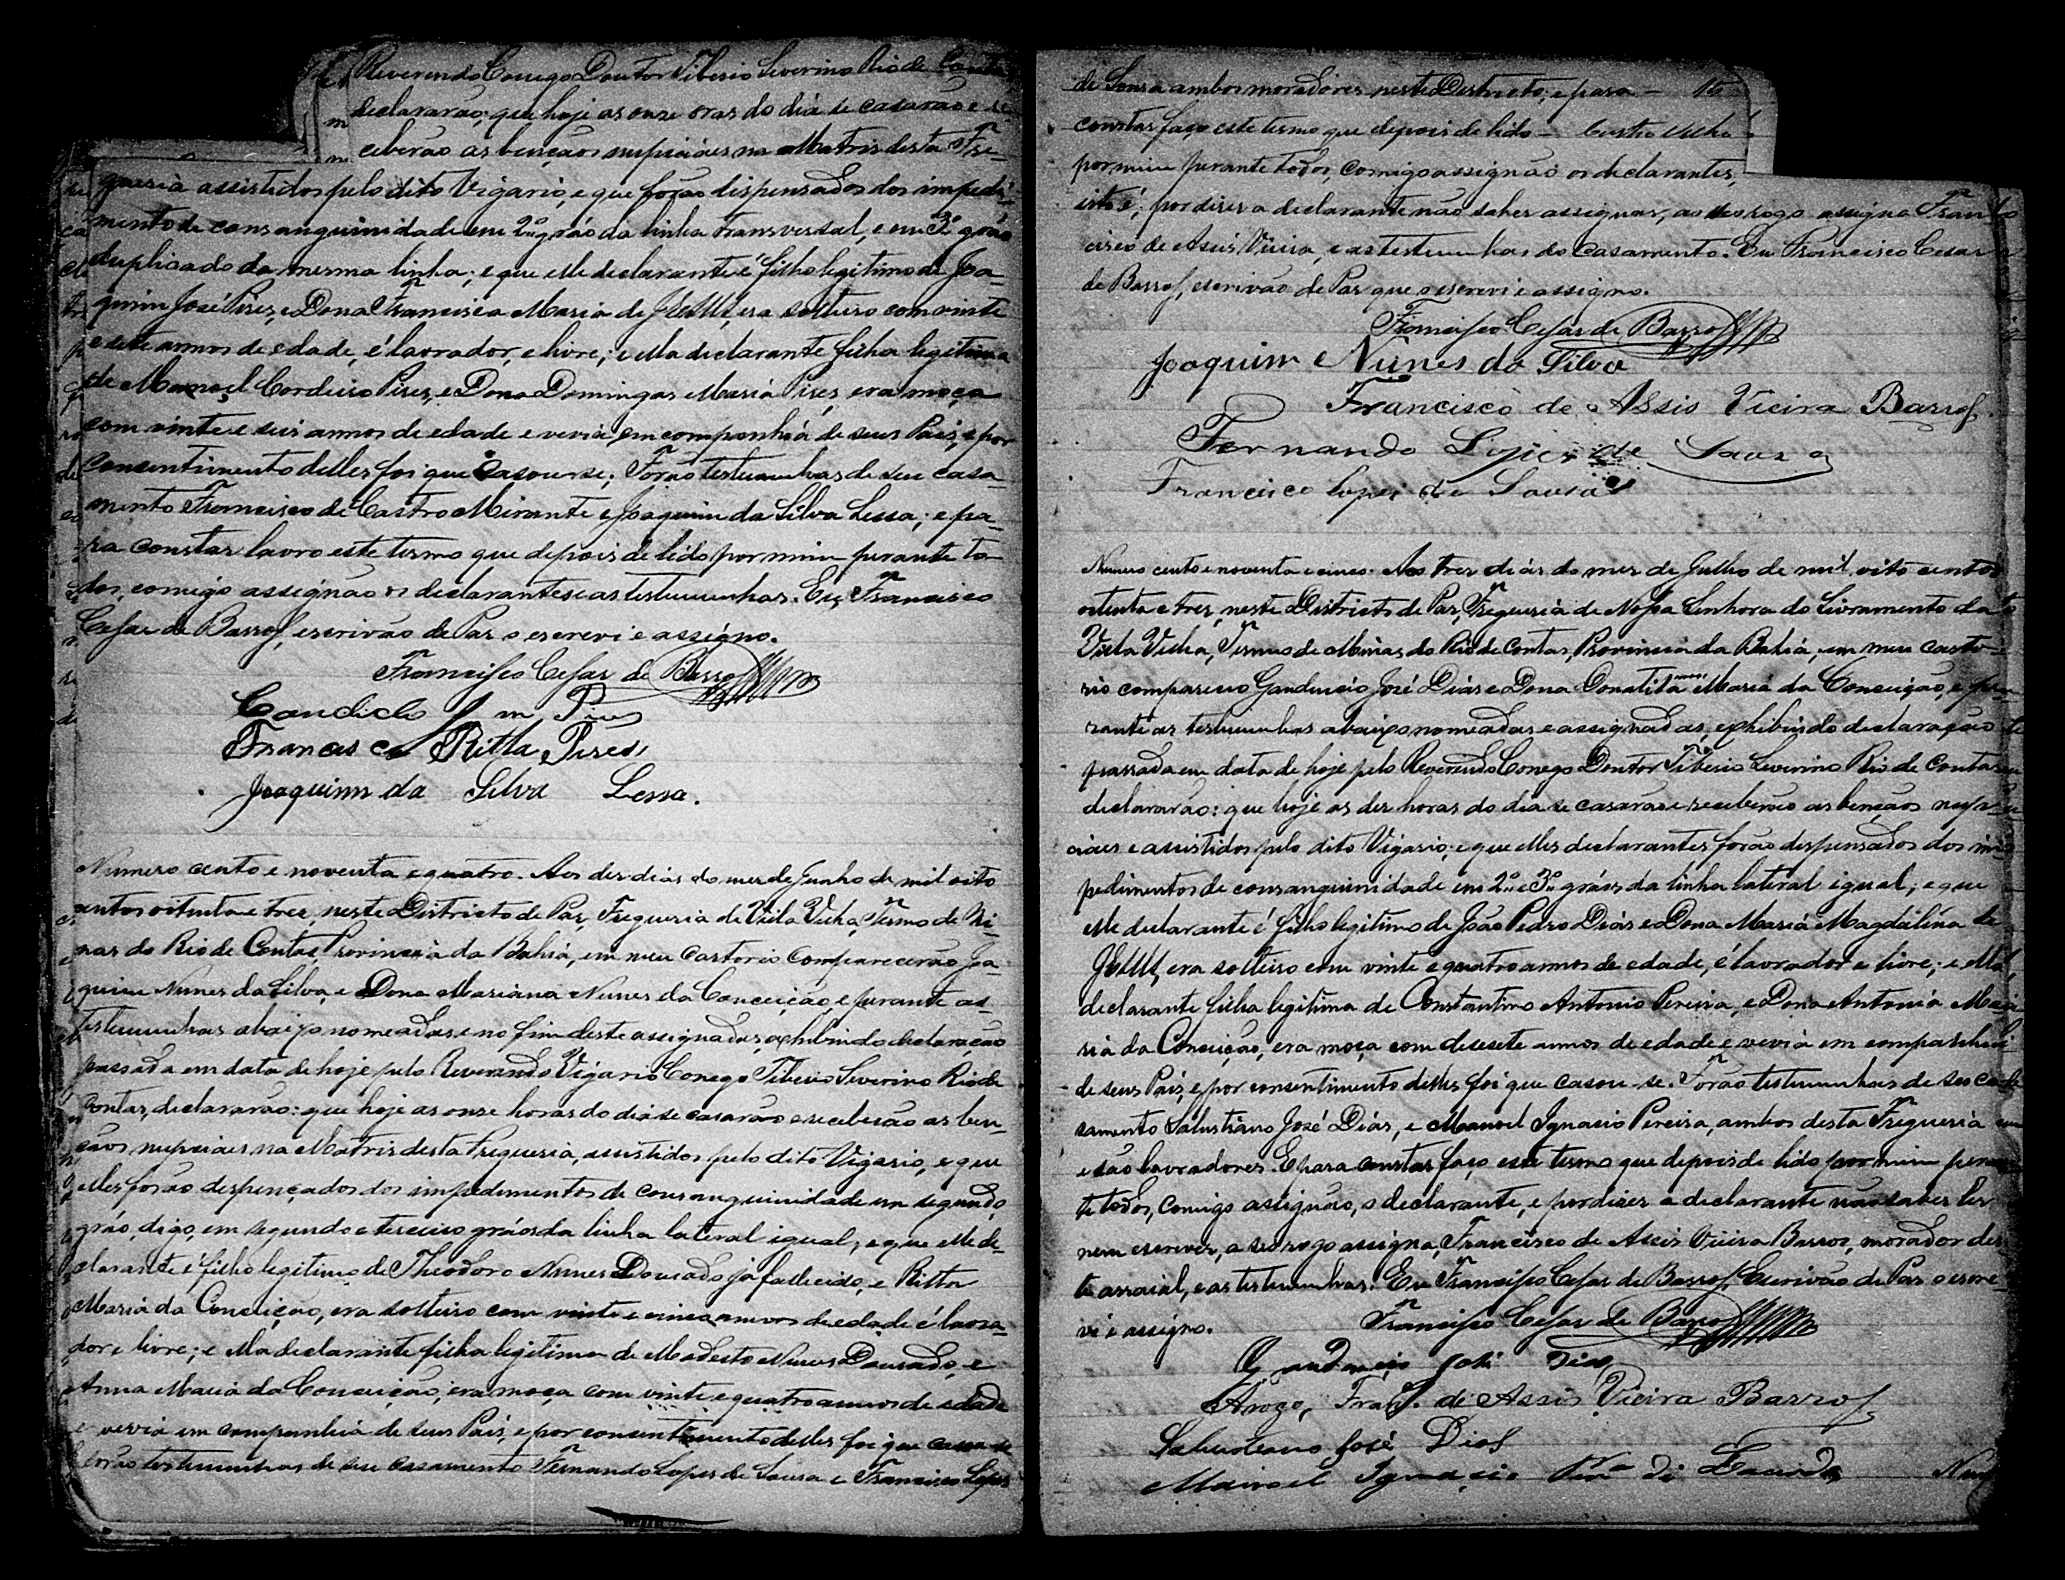 Reverendo Conego Doutor Tiberio Severino Rio de Contas
declararão, que hoje as onze oras do dia se casarão e re
ceberão as bençaõs nupiciáes na Matris desta Fre-
guesia assistidos pelo dito Vigario, e que forão dispensados dos impedi-
mentos de consanguinidade em 2º gráo da linha transversal, e em 3º gráo
duplicado da mesma linha; e que elle declarante é filho legitimo de Joa-
quim José Pires, e Dona Francisca Maria de Jesus, era solteiro com vinte
e sete annos de edade, é lavrador, e livre; e ella declarante filha legitima
de Manoel Cordeiro Pires, e Dona Domingas Maria Pires, era moça
com vinte e seis annos de edade e vevia em companhia de seus Pais, e por
consentimento delles foi que casou-se; Forão testemunhas de seu casa-
mento Francisco de Castro Mirante e Joaquim da Silva Lessa; e pa-
ra constar lavro este termo que depois de lido por mim perante to-
dos, comigo assignão os declarantes e as testemunhas. Eu, Francisco
Cesar de Barros, escrivão de Pas o escrevi e assigno.
Francisco Cesar de Barros
Candido Pires
Francisca Ritta Pires
Joaquim da Silva Lessa.
Numero cento e noventa e quatro. Aos des dias do mes de Junho de mil oito
centos oitenta e tres, neste Districto de Pas, Freguesia de Villa Velha, Termo de Mi-
nas do Rio de Contas, Provincia da Bahia, em meu cartorio comparecerão Joa-
quim Nunes da Silva, e Dona Mariana Nunes da Conceição, e perante as
testemunhas abaixo nomeadas e no fim deste assignadas, exhibindo declaração
passada em data de hoje pelo Reverendo Vigario Conego Tiberio Severino Rio de
Contas, declararão: que hoje as onse horas do dia se casarão e receberão as ben-
çaõs nupciaes na Matris desta Freguesia, assistidos pelo dito Vigario, e que
elles forão despençados dos impedimentos de consanguinidade em segundo
gráo, digo, em segundo e terceiro gráos da linha lateral igual; e que elle de-
clarante é filho legitimo de Theodoro Nunes Dourado já fallecido, e Ritta
Maria da Conceição, era solteiro com vinte e cinco annos de edade é lavra-
dor e livre; e ella declarante filha legitima de Modesto Nunes Dourado, e
Anna Maria da Conceição, era moça com vinte e quatro annos de edade
e vevia em companhia de seus Pais, e por consentimento delles foi que casou-se
Forão testemunhas de seu casamento Fernando Lopes de Sousa e Francisco Lopes
de Sousa ambos moradores neste Destricto; e para
constar faço este termo que depois de lido
por mim perante todos, comigo assignão os declarantes,
isto é, por diser a declarante não saber assignar, ao seo rogo assigna Fran-
cisco de Assis Vieira, e as testemunhas do casamento. Eu Francisco Cesar
de Barros, escrivão de Pas que o escrevi e assigno.
Francisco Cesar de Barros
Joaquim Nunes da Silva
Francisco de Assis Vieira Barros
Fernando Lopes de Souza
Francisco Lopes de Sousa
Numero cento e noventa e cinco. Aos tres diás do mes de Julho de mil oito centos
oitenta e tres, neste Districto de Pas, Freguesia de Nossa Senhora do Livramento da
Villa Velha, Termo de Minas do Rio de Contas, Provincia da Bahia, em meu carto-
rio compareceo Gaudencio José Diás e Dona Donatila Maria da Conceição, e pe
rante as testemunhas abaixo nomeadas e assignadas, exhibindo declaração
passada em data de hoje pelo Reverendo Conego Doutor Tiberio Severino Rio de Contas
declararão: que hoje as des horas do dia se casarão e receberão as bençãos nup-
ciaes e assistidos pelo dito Vigario; e que elles declarantes forão despensados dos im-
pedimentos de consanguinidade em 2º e 3º gráos da linha lateral igual; e que
elle declarante é filho legitimo de João Pedro Diás e Dona Maria Magdalena de
Jesus, era solteiro com vinte e quatro annos de edade, é lavrador e livre; e ella
declarante filha legitima de Constantino Antonio Pereira, e Dona Antonia Ma
ria da Conceição, era moça com desesete annos de edade e vevia em companhia
de seus Pais, e por consentimento delles foi que casou-se. Forão testemunhas de seo ca-
samento Salustiano José Diás, e Manoel Ignacio Pereira, ambos desta Freguesia
e são lavradores. E para constar faço este termo que depois de lido por mim peran
te todos, comigo assignão, o declarante, e por diser a declarante não saber ler
nem escrever, a seo rogo assigna, Francisco de Assis Vieira Barros, morador des
te arraial, e as testemunhas. Eu Francisco Cesar de Barros, Escrivão de Pas o escre
vi e assigno.
Francisco Cesar de Barros
Gaudencio José Dias
Arogo, Franco. de Assis Vieira Barros
Salustiano José Dias
Manoel Ignacio Pra de Lacerda